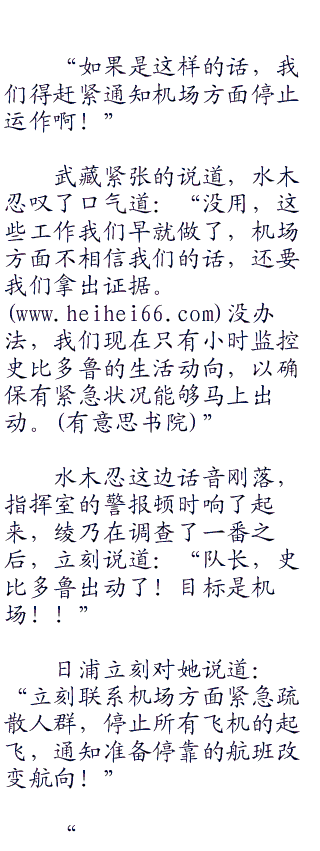 “如果是这样的话，我
们得赶紧通知机场方面停止
运作啊！”
武藏紧张的说道，水木
忍叹了口气道：“没用，这
些工作我们早就做了，机场
方面不相信我们的话，还要
我们拿出证据。
(www.heihei66.com)没办
法，我们现在只有小时监控
史比多鲁的生活动向，以确
保有紧急状况能够马上出
动。(有意思书院)”
水木忍这边话音刚落，
指挥室的警报顿时响了起
来，绫乃在调查了一番之
后，立刻说道：“队长，史
比多鲁出动了！目标是机
场！！”
日浦立刻对她说道：
“立刻联系机场方面紧急疏
散人群，停止所有飞机的起
飞，通知准备停靠的航班改
变航向！”
“